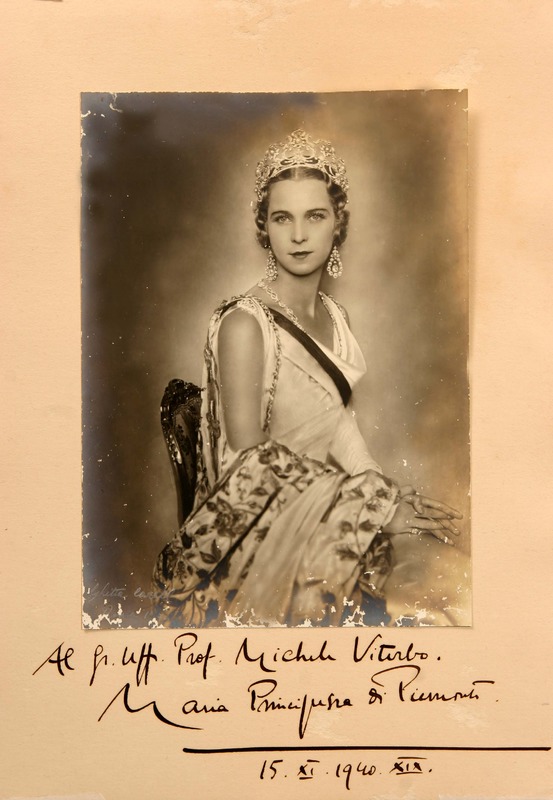 Al Gr. Uff. Prof. Michele Viterbo.
Maria Principessa di Piemonte.
15. XI. 1940. XIX.